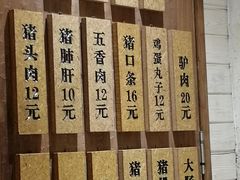 猪头肉12元
猪肺肝10元
五香肉12元
猪口条16元
鸡蛋丸子12元
驴肉20元
猪
猪
大